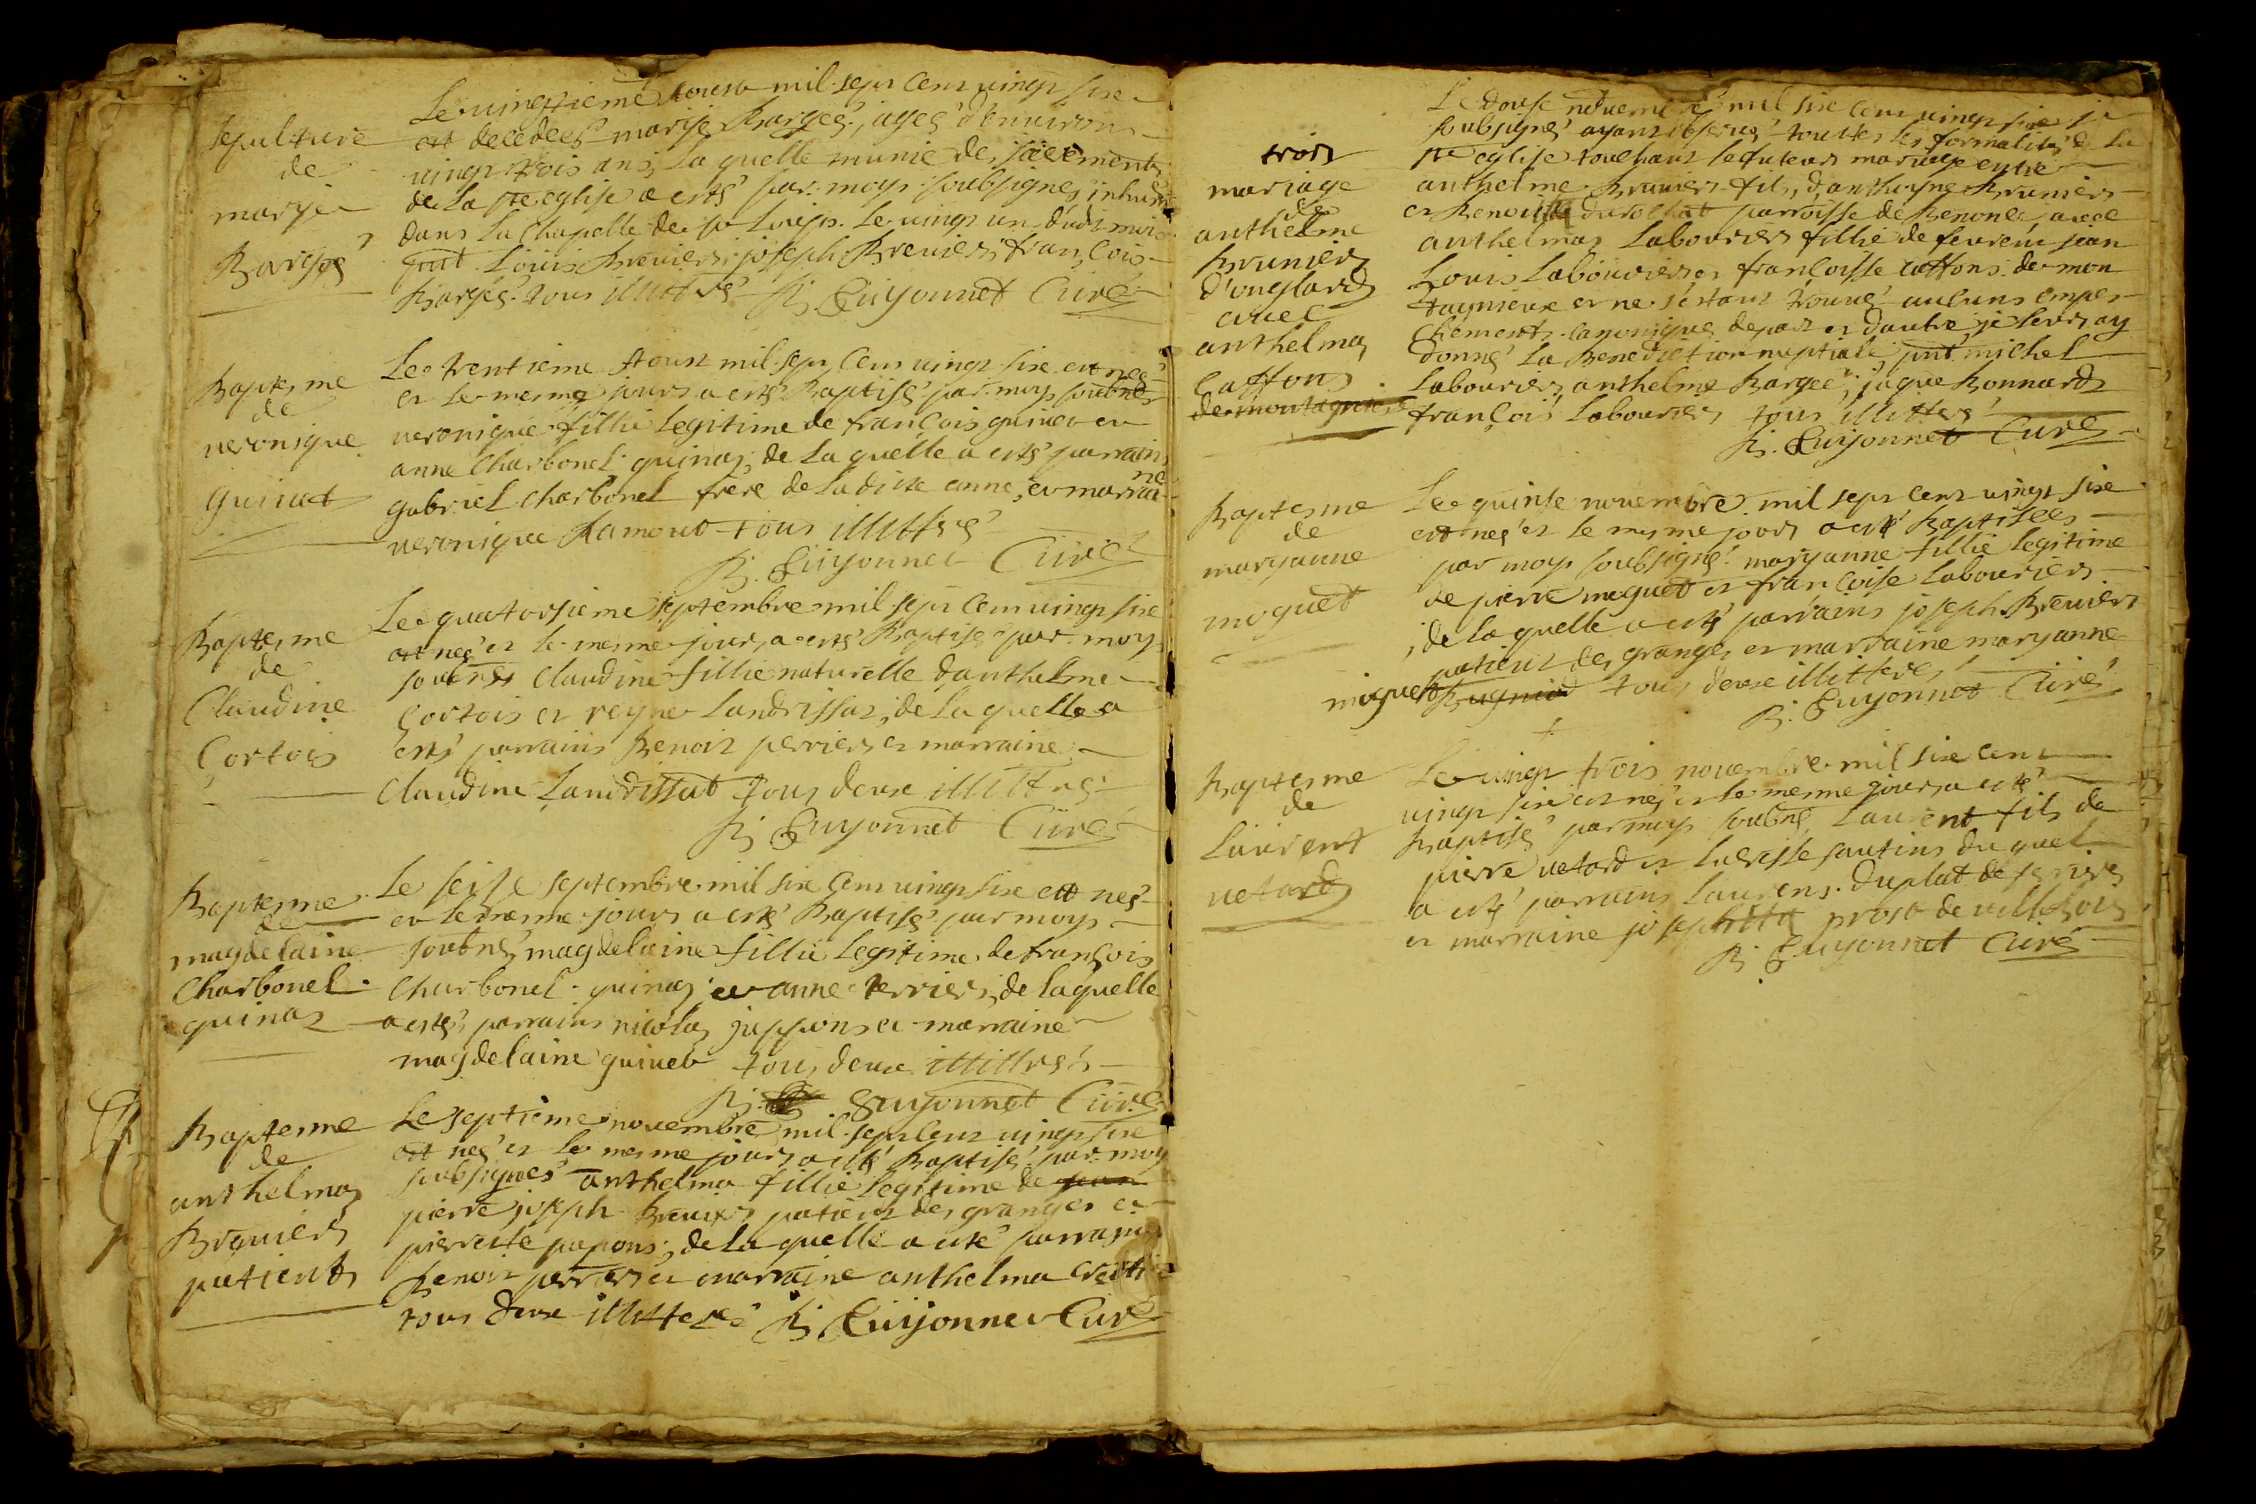 sepulture
de
marye
Bargeé
Le vingtieme aoust mil sept cent vingt sixe
est decedeeé marye Bargeé, ageé d'environ
vingt trois ans, la quelle munie des sacrements
de la ste eglise a esté par moy soubsigné inhumé
dans la chapelle de st Louys le vingt un dudt mois
pnt Louis Breuiers joseph Breuiers françois
Bargeé tous illittré B. Guyonnet Curé
Baptesme
de
veronique
guinet
Le trentieme aoust mil sept cent vingt sixe est neé
et le mesme jours a esté Baptisé par moy soubné
veronique fillie legitime de françois guinet et
anne Charbonel guinaz de la quelle a esté parrains
gabriel charbonel frere de la dicte anne, et marraine
veronique Ramout tous illittré
B. Guyonnet Curé
Baptesme
de
Claudine
Cortois
Le quatorsieme septembre mil sept cent vingt sixe
est neé et le mesme jours a esté Baptisé par moy
soubné Claudine fillie naturelle d'anthelme
Cortois et reyne Landrissaz, de la quelle a
esté parrains Benoit perriers et marraine
Claudine Landrissat tous deux illittré
B. Guyonnet Curé
Baptesme
de
magdelaine
Charbonel
guinaz
Le seize septembre mil sixe cent vingt sixe est neé
et le mesme jours a esté Baptisé par moy
soubné magdelaine fillie legitime de françois
Charbonel guinaz et anne terriers, de laquelle
a esté parrains nicolas juppons et marraine
magdelaine guinet tous deux illittré
B. Guyonnet Curé
Baptesme
de
anthelmaz
Breuiers
patient
Le septieme novembre mil sept cent vingt sixe
est neé et le mesme jours a esté Baptisé par moy
subsigneé anthelma fillie legitime de jean
pierre joseph Breuiers patient des granges et
pierrette papons, de la quelle a esté parrayns
Benoit perriers et marraine anthelma
tous deux illitteré B. Guyonnet Curé
trois
mariage
de
anthelme
Bruniers
d'onglard
avec
anthelma
Caffons
de montagnieux
Le douse novembre mil sixe cent vingt sixe je
soubsigné ayant observé touttes les formalités de la
ste eglise touchant le futeur mariage entre
anthelme Bruniers fils, d'anthoyne Bruniers
et Benoitte durochat parroisse de Benone avec
anthelmaz Labouriers fillie de feu jean
Louis Labouriers et françoisse caffons de mon
taynieux et ne s'estant trouvé auluns empes
chements canoniques de part et d'autre je leurs ay
donné la Benediction nuptiale, pnt michel
Labouriers anthelme Bargeé, jaque Bonnard
françois Labouriers tous illitteré
B. Guyonnet Curé
Baptesme
de
maryanne
moguet
Le quinse novembre mil sept cent vingt sixe
est neé et le mesme jours a esté Baptiseés
par moy soubsigné maryanne fillie legitime
de pierre moguet et françoise Labouriers
de la quelle a esté parrains joseph Breuiers
patient des granges et marraine maryanne
moguet tous deux illitteré
B. Guyonnet Curé
Baptesme
de
Laurent
netard
Le vingt trois novembre mil sixe cent
vingt sixe est neé et le mesme jours a esté
Baptisé par moy soubné Laurent fils de
pierre netard et Lucresse santins du quel
a esté parrains Laurens duplat de
et marraine josephtte prost de villebois
B. Guyonnet Curé